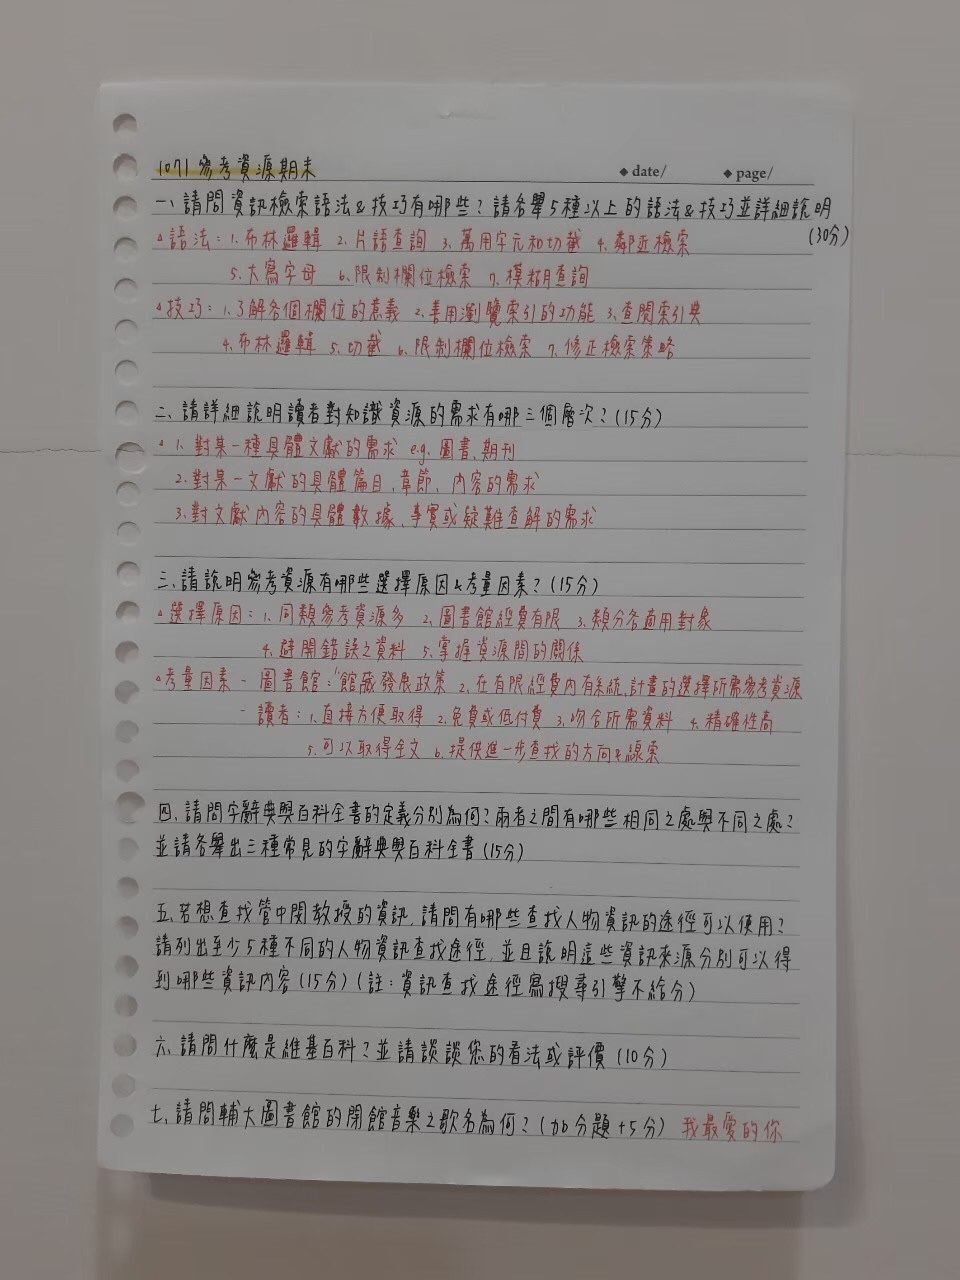 1071參考資源期末
◆ date/ ◆ page/
一、請問資訊檢索語法&技巧有哪些？請各舉5種以上的語法&技巧並詳細說明
(30分)
△語法：1.布林邏輯 2.片語查詢 3.萬用字元和切截 4.鄰近檢索
5.大寫字母 6.限制欄位檢索 7.模糊查詢
△技巧：1.了解各個欄位的意義 2.善用瀏覽索引的功能 3.查閱索引典
4.布林邏輯 5.切截 6.限制欄位檢索 7.修正檢索策略
二、請詳細說明讀者對知識資源的需求有哪三個層次？(15分)
△1.對某一種具體文獻的需求 e.g. 圖書、期刊
2.對某一文獻的具體篇目、章節、內容的需求
3.對文獻內容的具體數據、事實或疑難查解的需求
三、請說明參考資源有哪些選擇原因&考量因素？(15分)
△選擇原因：1.同類參考資源多 2.圖書館經費有限 3.類分各適用對象
4.避開錯誤之資料 5.掌握資源間的關係
△考量因素－圖書館：1.館藏發展政策 2.在有限經費內有系統、計畫的選擇所需參考資源
－讀者：1.直接方便取得 2.免費或低付費 3.吻合所需資料 4.精確性高
5.可以取得全文 6.提供進一步查找的方向&線索
四、請問字辭典與百科全書的定義分別為何？兩者之間有哪些相同之處與不同之處？
並請各舉出三種常見的字辭典與百科全書(15分)
五、若想查找管中閔教授的資訊，請問有哪些查找人物資訊的途徑可以使用？
請列出至少5種不同的人物資訊查找途徑，並且說明這些資訊來源分別可以得
到哪些資訊內容(15分)(註：資訊查找途徑寫搜尋引擎不給分)
六、請問什麼是維基百科？並請談談您的看法或評價(10分)
七、請問輔大圖書館的閉館音樂之歌名為何？(加分題+5分) 我最愛的你